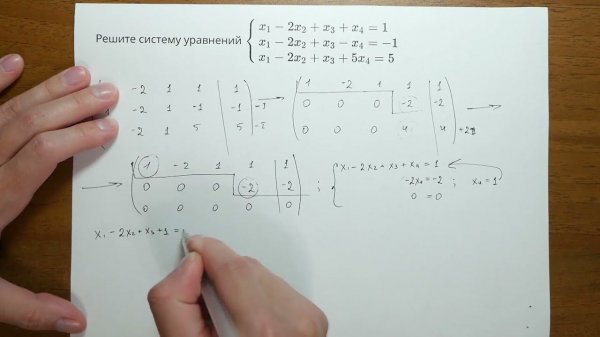 Решите систему уравнений
x₁ − 2x₂ + x₃ + x₄ = 1
x₁ − 2x₂ + x₃ − x₄ = −1
x₁ − 2x₂ + x₃ + 5x₄ = 5
-2 1 1 | 1
-2 1 -1 | -1
-2 1 5 | 5
1 -2 1 1 | 1
0 0 0 -2 | -2
0 0 0 4 | 4
1 -2 1 1 | 1
0 0 0 -2 | -2
0 0 0 0 | 0 ;
x₁ − 2x₂ + x₃ + x₄ = 1
-2x₄ = -2 ; x₄ = 1
0 = 0
x₁ − 2x₂ + x₃ + 1 =